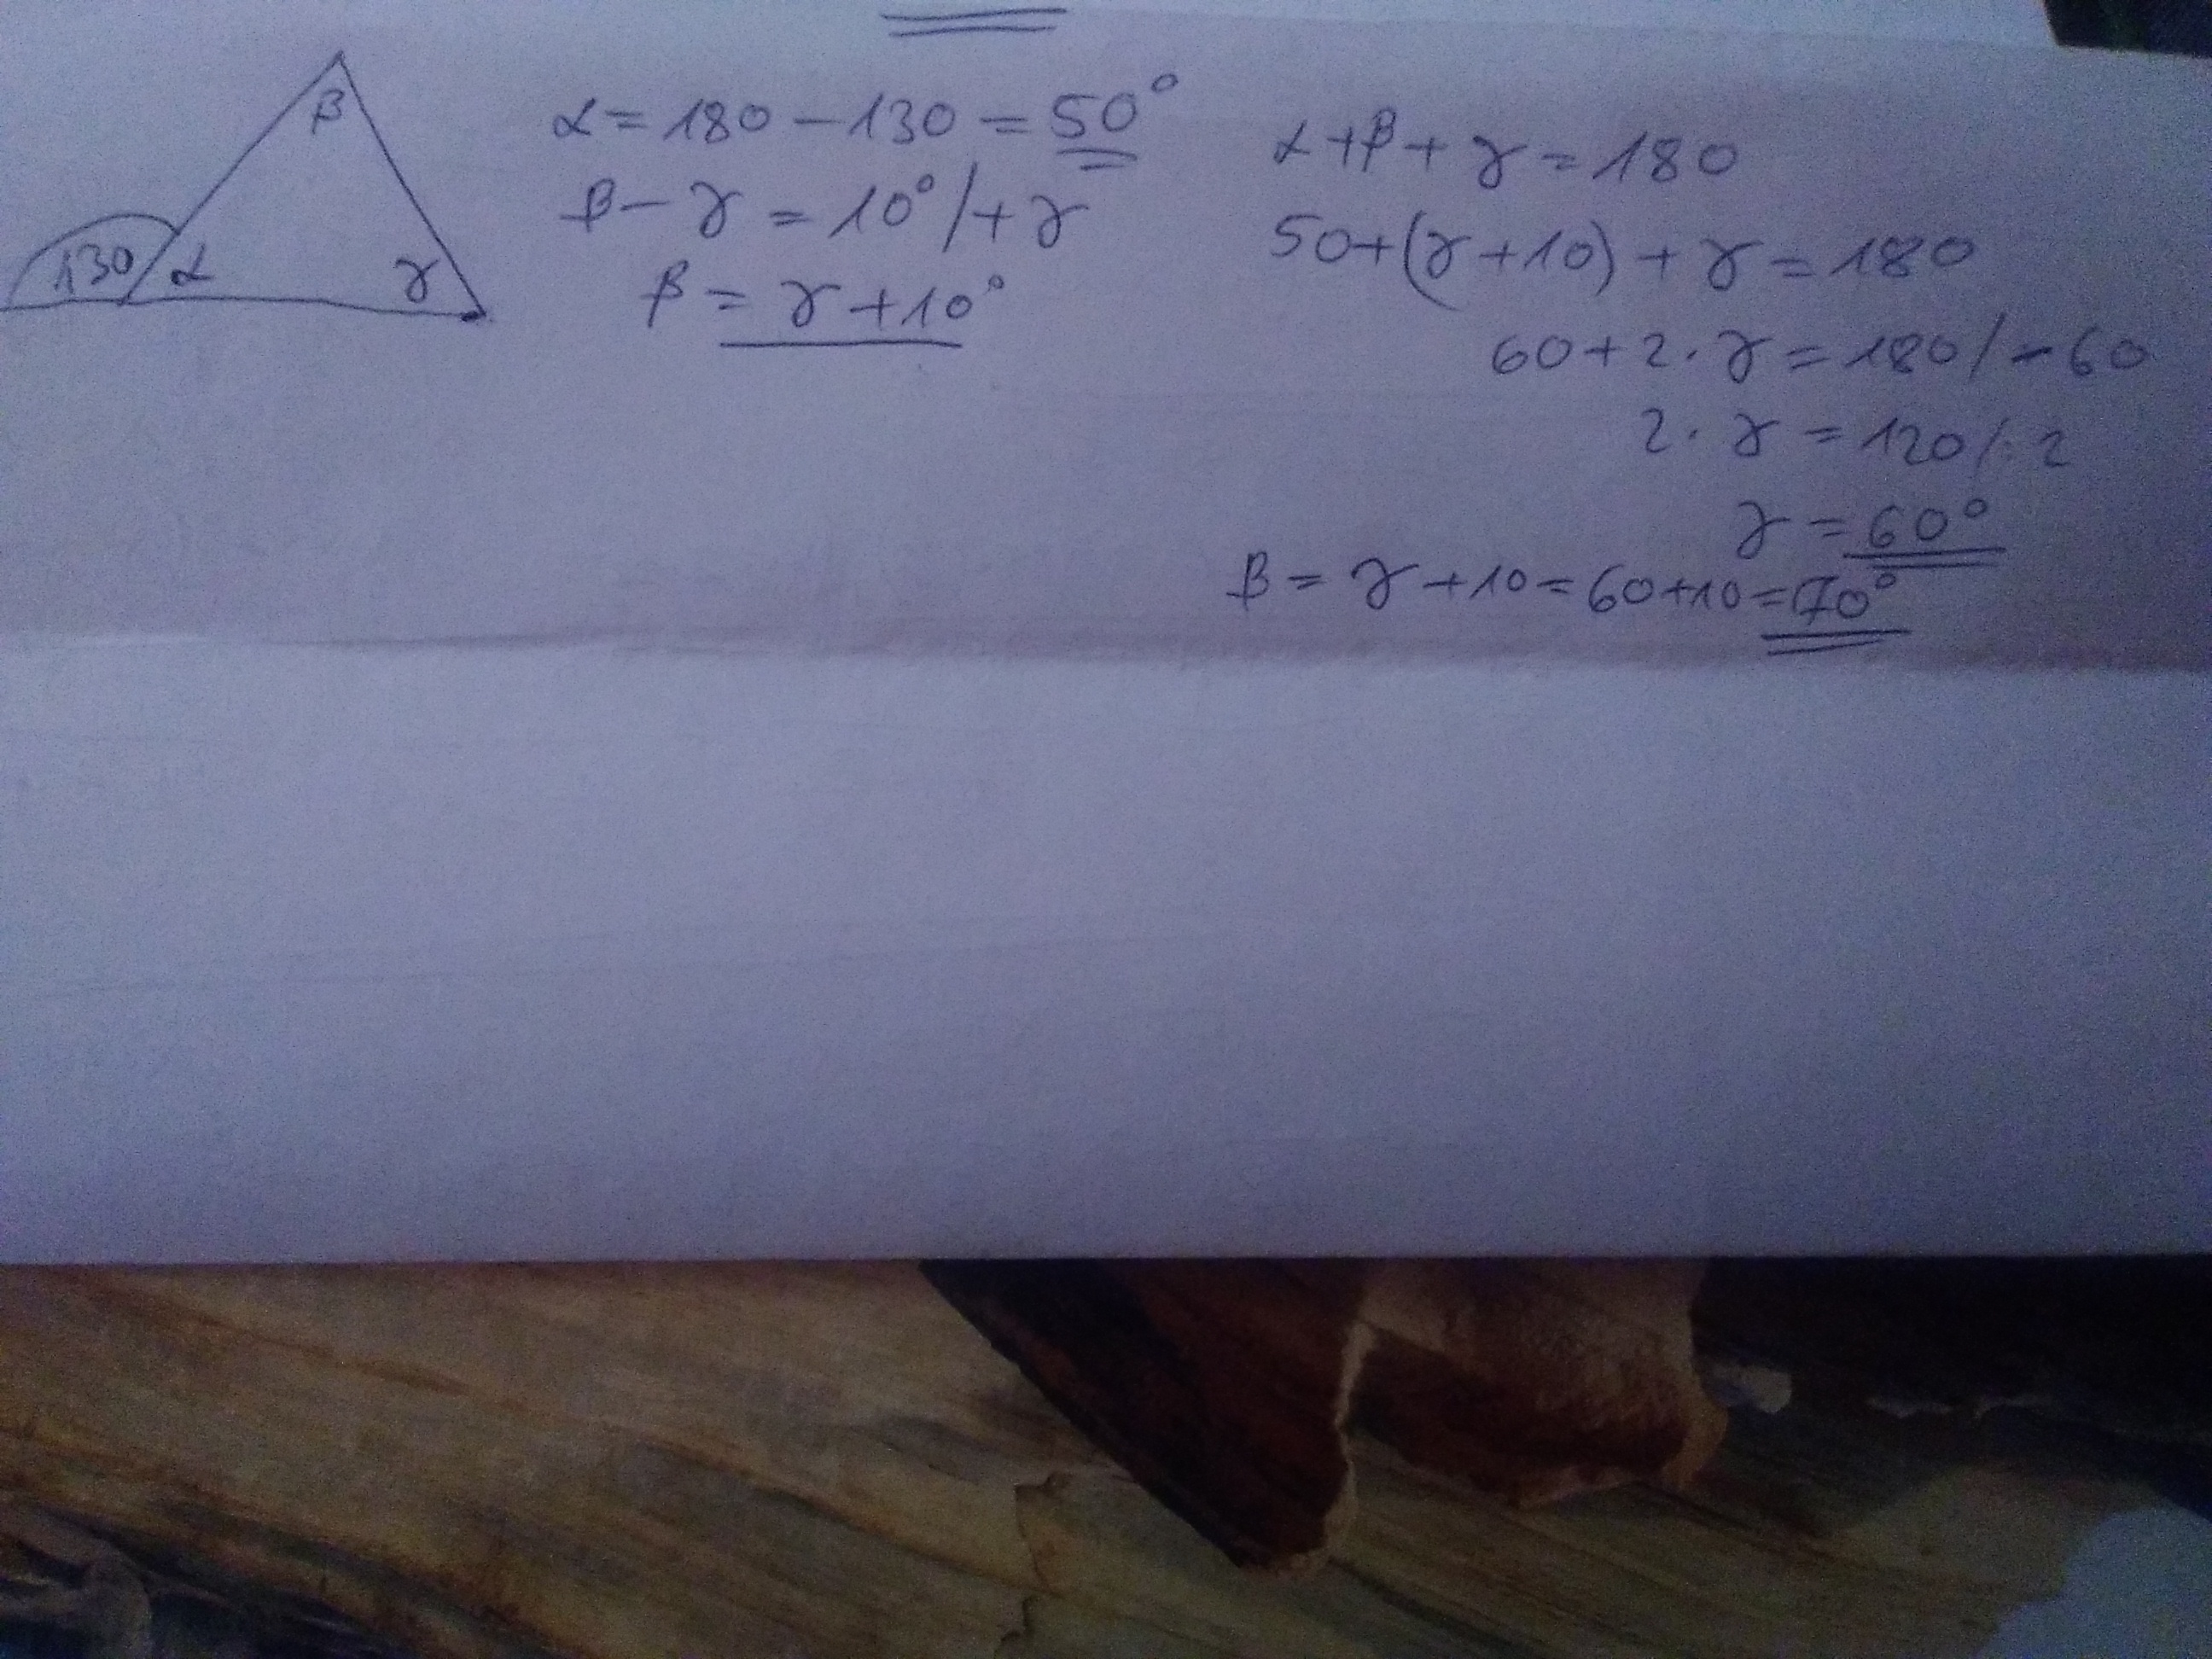 β
130 α γ
α = 180 - 130 = 50°
β - γ = 10° / + γ
β = γ + 10°
α + β + γ = 180
50 + (γ + 10) + γ = 180
60 + 2 · γ = 180 / - 60
2 · γ = 120 / : 2
γ = 60°
β = γ + 10 = 60 + 10 = 70°